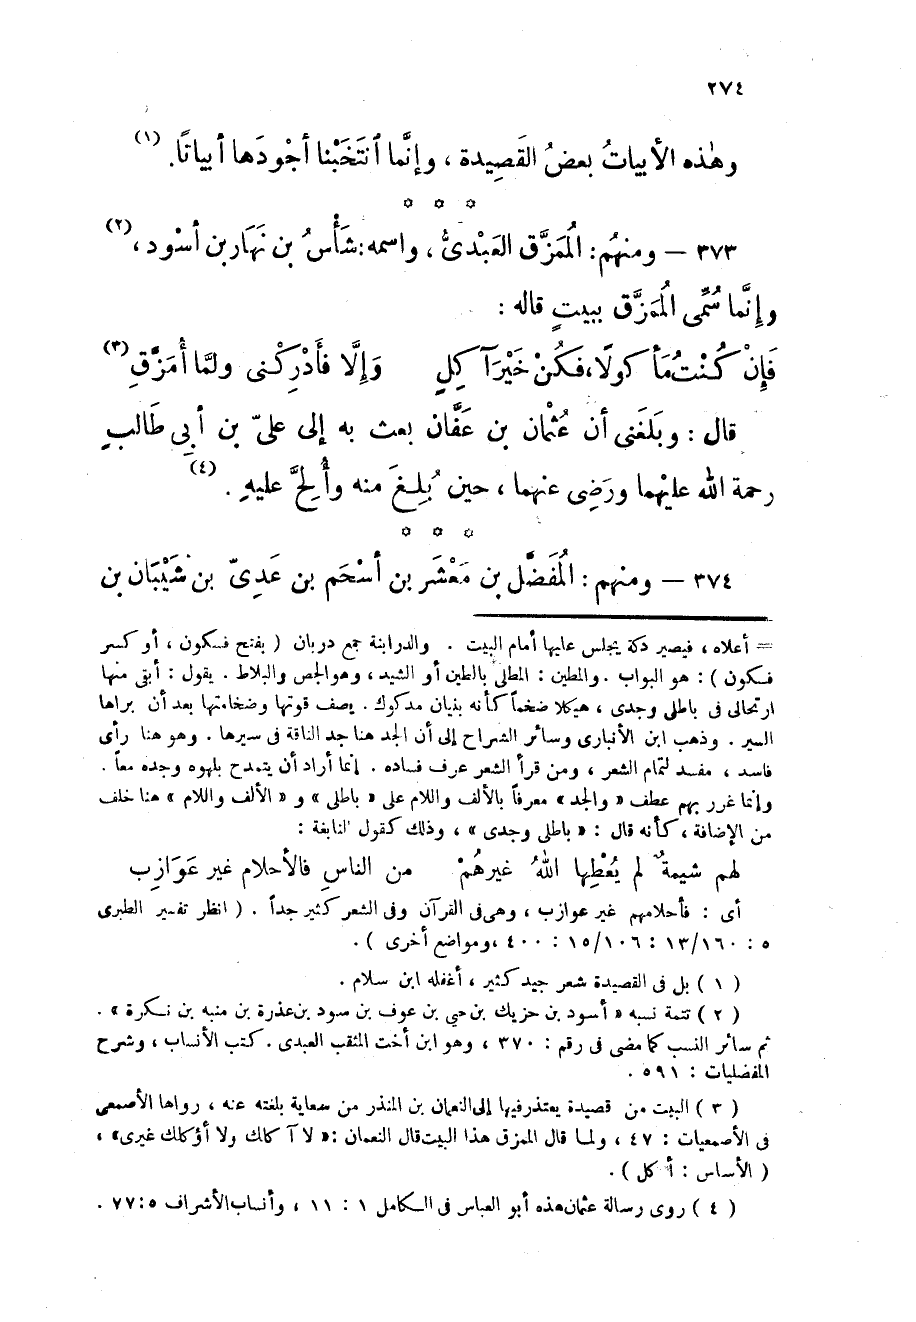 ٢٧٤
وهٰذه الأبياتُ بعضُ القَصِيدة ، وإنَّما ٱنتَخَبْنا أجْوَدَها أبياتًا. (١)
* * *
٣٧٣ — ومنهُم: الُمَزَّق العَبْدىُّ ، واسمه: شَأْسُ بن نَهَار بن أسْود ، (٢)
وإنَّما سُمِّى الُمَزَّق ببيتٍ قاله :
فَإِنْ كُنْتُ مَأْكولًا، فَكُنْ خَيْرَ آكِلٍ    وَإِلَّا فَأَدْرِكْنى ولمَّا أُمَزَّقِ (٣)
قال : وبَلَغَنى أن عُثْمان بن عَفَّان بعث به إلى علىّ بن أبى طَالبٍ
رحمة الله عليْهما ورَضِى عنهما ، حين بُلِغَ منه وأُلِحَّ عليهِ . (٤)
* * *
٣٧٤ — ومنهم : الُمفَضَّل بن مَعْشَر بن أسْحَم بن عَدِىّ بن شَيْبَان بن
= أعلاه ، فيصير دكة يجلس عليها أمام البيت . والدرابنة جمع دربان ( بفتح فسكون ، أو كسر
فسكون ) : هو البواب . والمطين : المطلى بالطين أو الشيد ، وهو الجص والبلاط . يقول : أبقى منها
ارتحالى فى باطلى وجدى ، هيكلا ضخماً كأنه بنيان مدكوك . يصف قوتها وضخامتها بعد أن براها
السير . وذهب ابن الأنبارى وسائر الشراح إلى أن الجد هنا جد الناقة فى سيرها . وهو هنا رأى
فاسد ، مفسد لتمام الشعر ، ومن قرأ الشعر عرف فساده . إنما أراد أن يتمدح بلهوه وجده معاً .
وإنما غرر بهم عطف « والجد » معرفاً بالألف واللام على « باطلى » و « الألف واللام » هنا خلف
من الإضافة ، كأنه قال : « باطلى وجدى » ، وذلك كقول النابغة :
لهم شيمةٌ لم يُعْطِها اللهُ غيرهُمْ    من الناسِ فالأحلام غير عَوَازِب
أى : فأحلامهم غير عوازب ، وهى فى القرآن وفى الشعر كثير جداً . ( انظر تفسير الطبرى
٥ : ١٦٠/١٣ : ١٠٦/١٥ : ٤٠٠ ، ومواضع أخرى ) .
( ١ ) بل فى القصيدة شعر جيد كثير ، أغفله ابن سلام .
( ٢ ) تتمة نسبه « أسود بن حزيك بن حى بن عوف بن سود بن عذرة بن منبه بن نكرة » .
ثم سائر النسب كما مضى فى رقم : ٣٧٠ ، وهو ابن أخت المثقب العبدى . كتب الأنساب ، وشرح
المفضليات : ٥٩١ .
( ٣ ) البيت من قصيدة يعتذر فيها إلى النعمان بن المنذر من سعاية بلغته عنه ، رواها الأصمعى
فى الأصمعيات : ٤٧ ، ولما قال الممزق هذا البيت قال النعمان : « لا آكلك ولا أؤكلك غيرى » ،
( الأساس : أكل ) .
( ٤ ) روى رسالة عثمان هذه أبو العباس فى الكامل ١ : ١١ ، وأنساب الأشراف ٥ : ٧٧ .